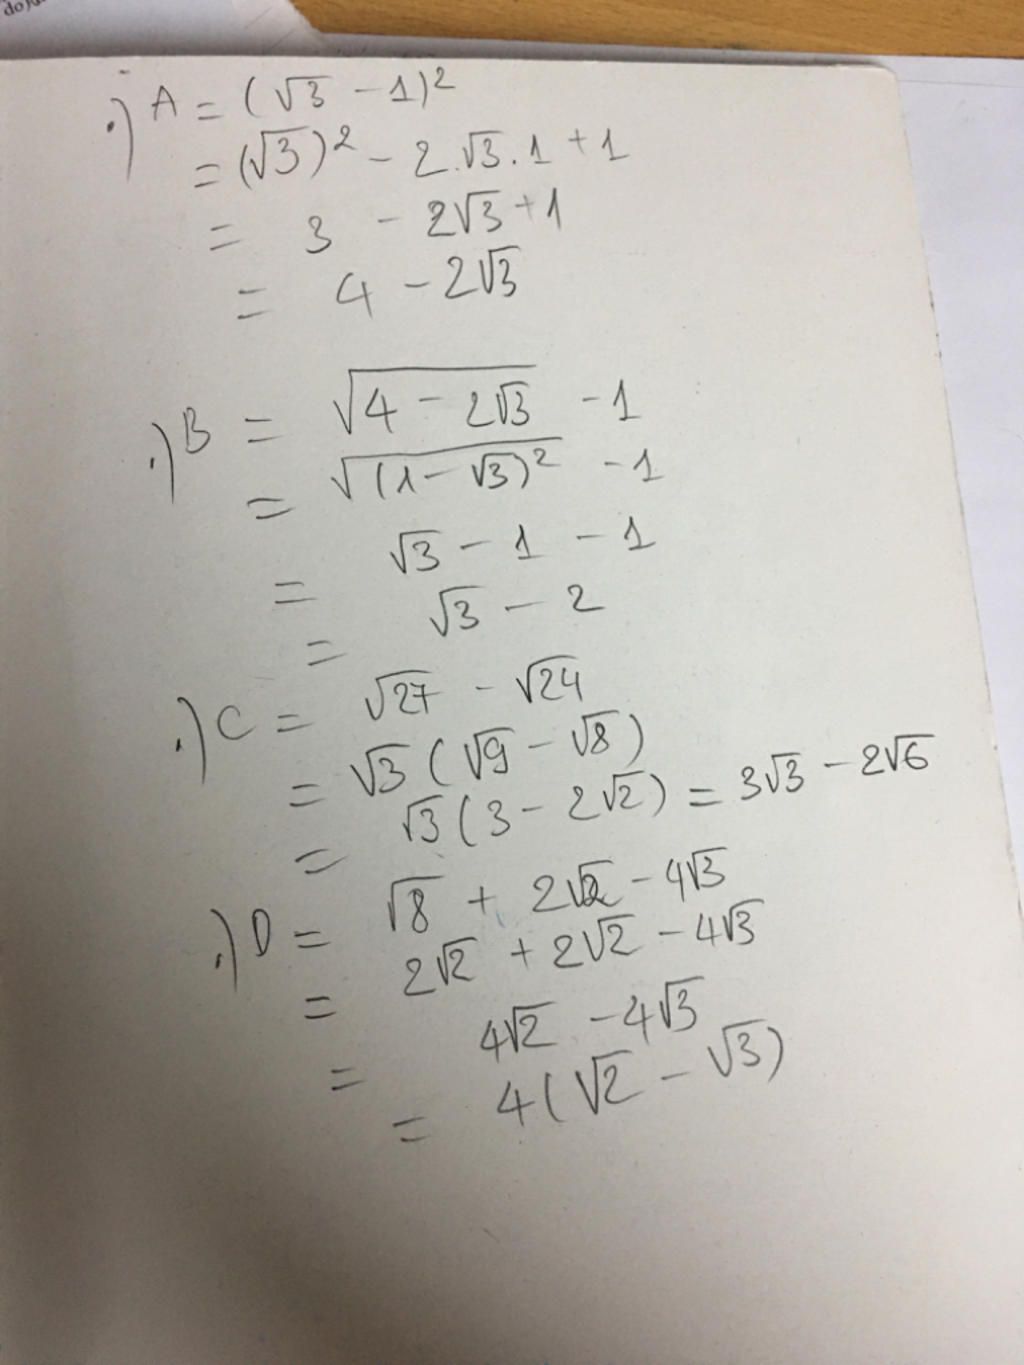 .) A = (√3 - 1)²
= (√3)² - 2.√3.1 + 1
= 3 - 2√3 + 1
= 4 - 2√3
.) B = √(4 - 2√3) - 1
= √((1 - √3)²) - 1
= √3 - 1 - 1
= √3 - 2
.) C = √27 - √24
= √3 (√9 - √8)
= √3 (3 - 2√2) = 3√3 - 2√6
.) D = √8 + 2√2 - 4√3
= 2√2 + 2√2 - 4√3
= 4√2 - 4√3
= 4(√2 - √3)